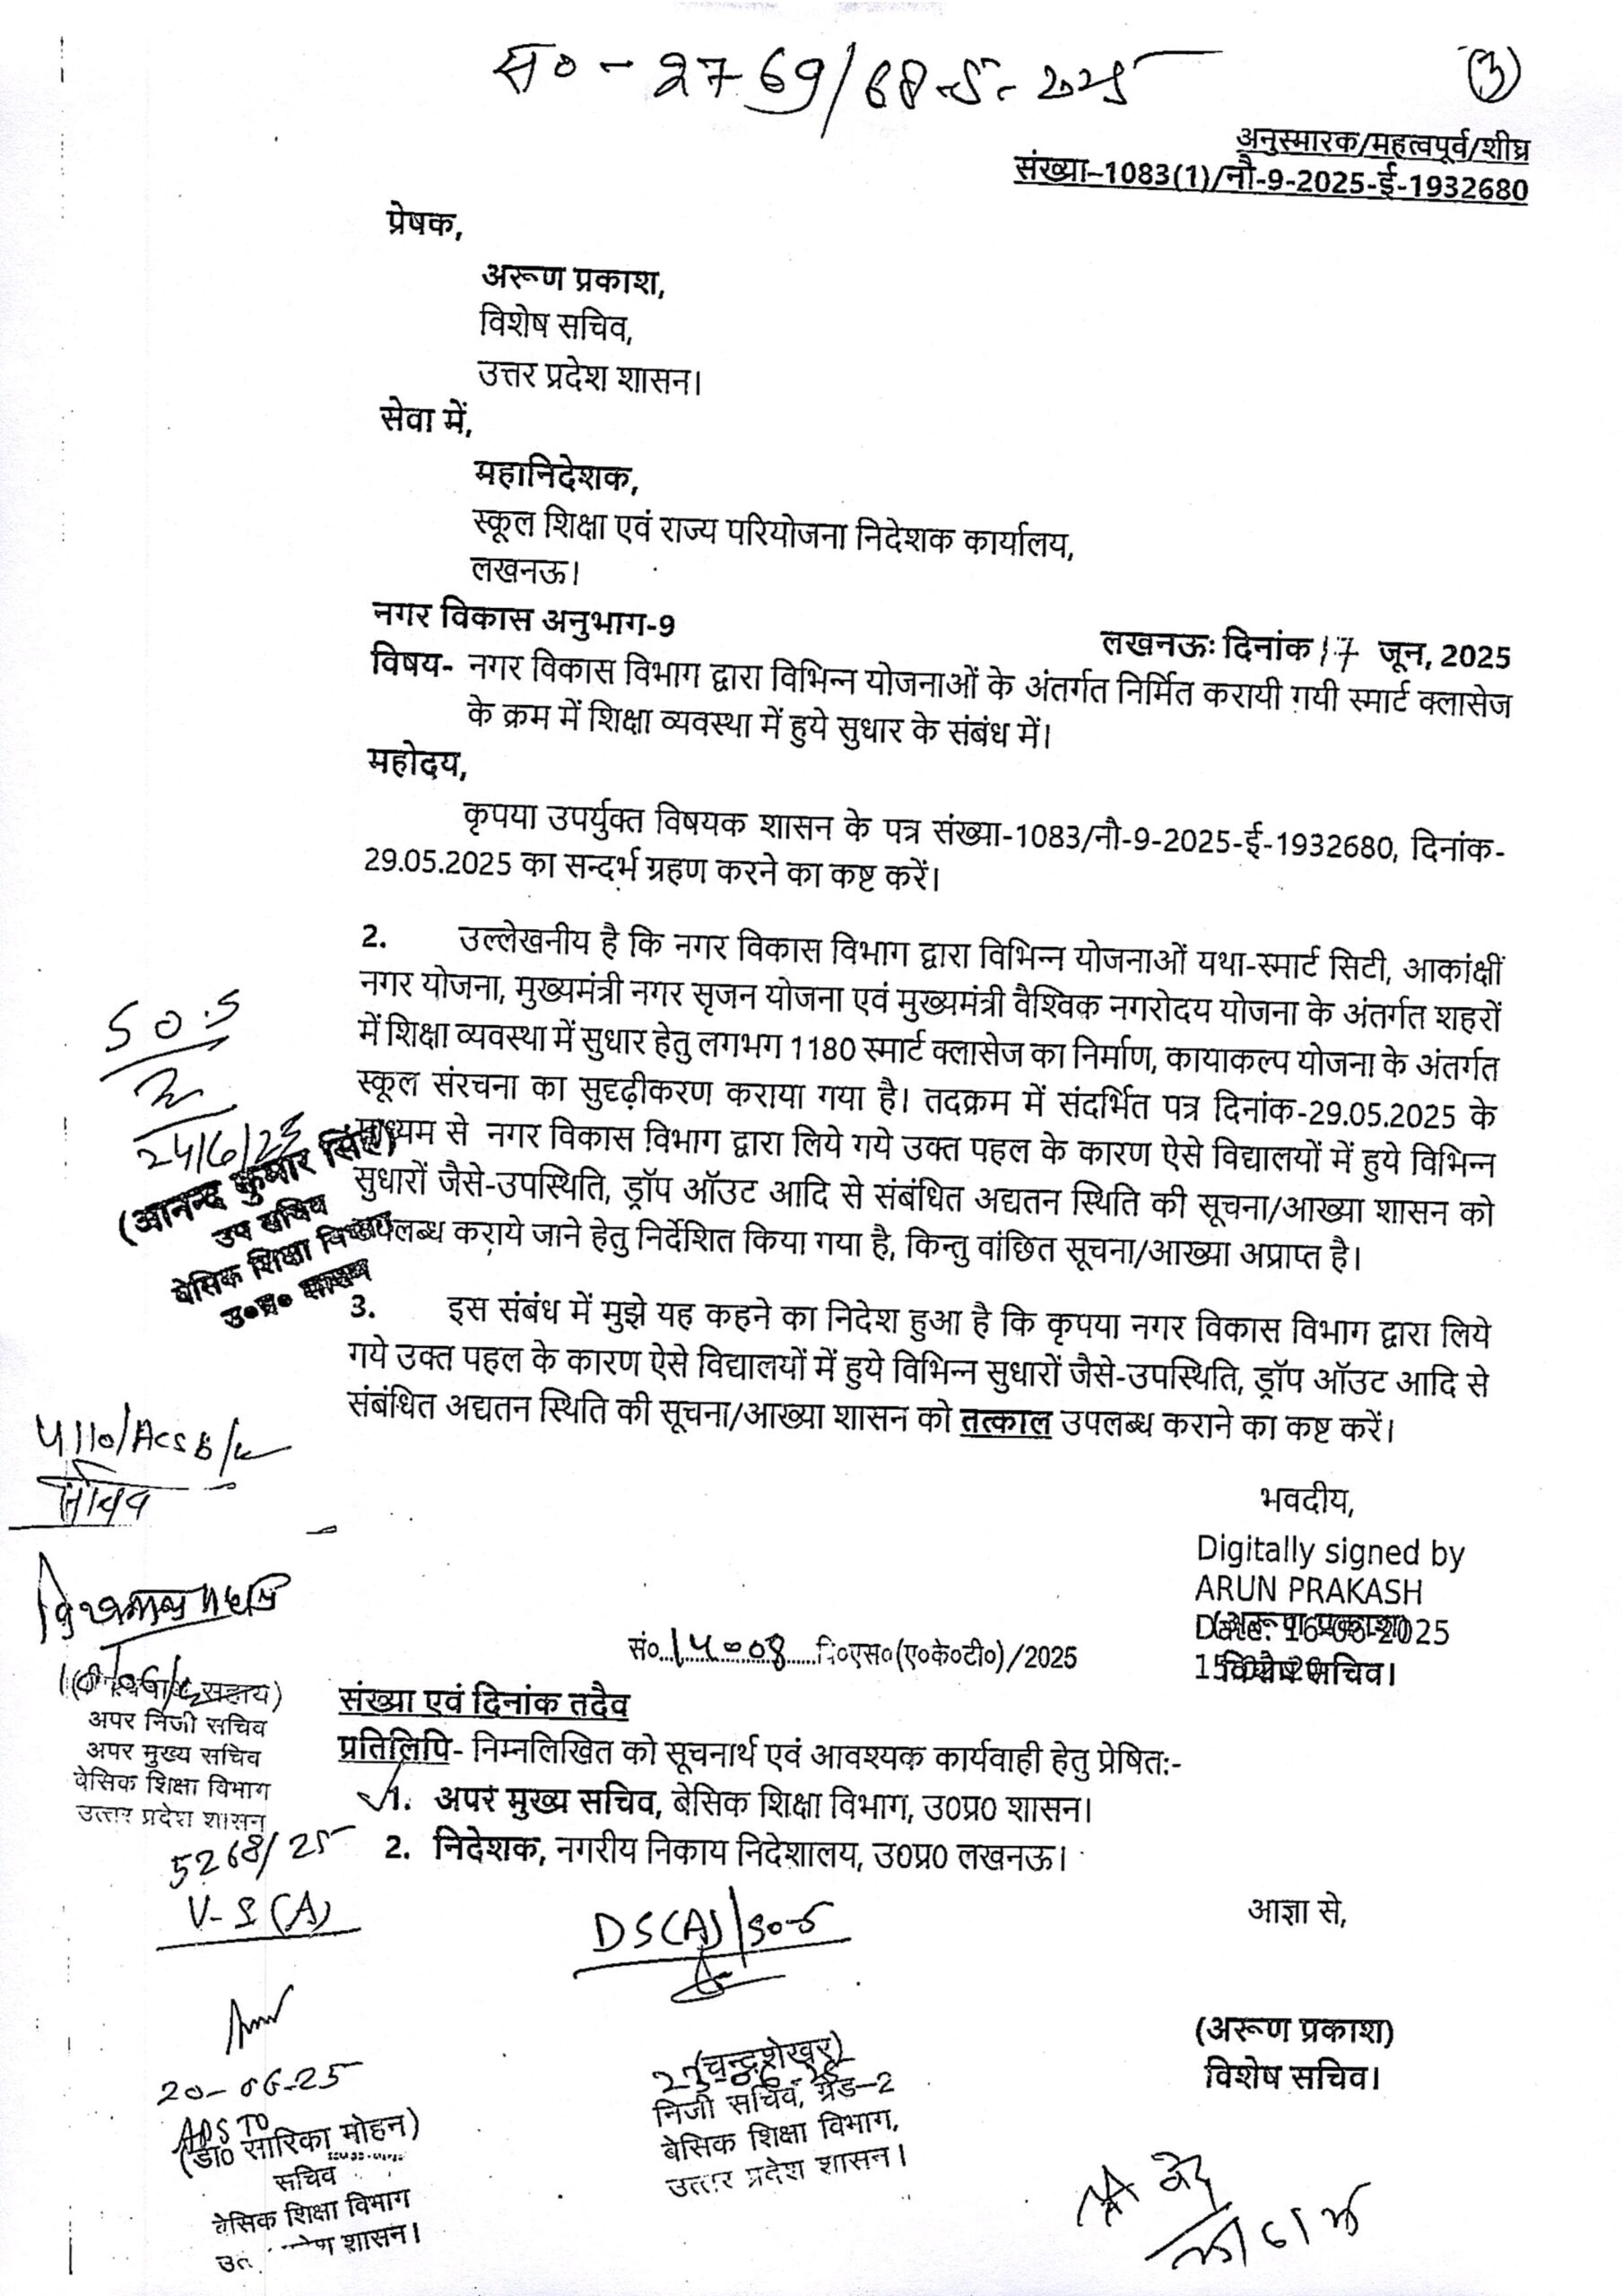 स0 - 2769/68-5-2025
(3)
अनुस्मारक/महत्वपूर्व/शीघ्र
संख्या–1083(1)/नौ-9-2025-ई-1932680
प्रेषक,
अरूण प्रकाश,
विशेष सचिव,
उत्तर प्रदेश शासन।
सेवा में,
महानिदेशक,
स्कूल शिक्षा एवं राज्य परियोजना निदेशक कार्यालय,
लखनऊ।
नगर विकास अनुभाग-9
लखनऊः दिनांक 17 जून, 2025
विषय- नगर विकास विभाग द्वारा विभिन्न योजनाओं के अंतर्गत निर्मित करायी गयी स्मार्ट क्लासेज
के क्रम में शिक्षा व्यवस्था में हुये सुधार के संबंध में।
महोदय,
कृपया उपर्युक्त विषयक शासन के पत्र संख्या-1083/नौ-9-2025-ई-1932680, दिनांक-
29.05.2025 का सन्दर्भ ग्रहण करने का कष्ट करें।
2. उल्लेखनीय है कि नगर विकास विभाग द्वारा विभिन्न योजनाओं यथा-स्मार्ट सिटी, आकांक्षीं
नगर योजना, मुख्यमंत्री नगर सृजन योजना एवं मुख्यमंत्री वैश्विक नगरोदय योजना के अंतर्गत शहरों
में शिक्षा व्यवस्था में सुधार हेतु लगभग 1180 स्मार्ट क्लासेज का निर्माण, कायाकल्प योजना के अंतर्गत
स्कूल संरचना का सुदृढ़ीकरण कराया गया है। तदक्रम में संदर्भित पत्र दिनांक-29.05.2025 के
माध्यम से नगर विकास विभाग द्वारा लिये गये उक्त पहल के कारण ऐसे विद्यालयों में हुये विभिन्न
सुधारों जैसे-उपस्थिति, ड्रॉप ऑउट आदि से संबंधित अद्यतन स्थिति की सूचना/आख्या शासन को
उपलब्ध कराये जाने हेतु निर्देशित किया गया है, किन्तु वांछित सूचना/आख्या अप्राप्त है।
S0.5
24/6/25
(आनन्द कुमार सिंह)
उप सचिव
बेसिक शिक्षा विभाग
उ०प्र० शासन
3. इस संबंध में मुझे यह कहने का निदेश हुआ है कि कृपया नगर विकास विभाग द्वारा लिये
गये उक्त पहल के कारण ऐसे विद्यालयों में हुये विभिन्न सुधारों जैसे-उपस्थिति, ड्रॉप ऑउट आदि से
संबंधित अद्यतन स्थिति की सूचना/आख्या शासन को तत्काल उपलब्ध कराने का कष्ट करें।
सचिव
भवदीय,
Digitally signed by
ARUN PRAKASH
Date: 16-06-2025
(अरूण प्रकाश)
विशेष सचिव।
सं०..14-08...वि०एस०(ए०के०टी०)/2025
संख्या एवं दिनांक तदैव
प्रतिलिपि- निम्नलिखित को सूचनार्थ एवं आवश्यक कार्यवाही हेतु प्रेषित:-
1. अपर मुख्य सचिव, बेसिक शिक्षा विभाग, उ0प्र0 शासन।
2. निदेशक, नगरीय निकाय निदेशालय, उ0प्र0 लखनऊ।
सहाय)
अपर निजी सचिव
अपर मुख्य सचिव
बेसिक शिक्षा विभाग
उत्तर प्रदेश शासन
5268/25
V-S(A)
DS(A)/S0-5
आज्ञा से,
(अरूण प्रकाश)
विशेष सचिव।
20-06-25
(डा0 सारिका मोहन)
सचिव
बेसिक शिक्षा विभाग
शासन।
(चन्द्रशेखर)
23-06-25
निजी सचिव, ग्रेड–2
बेसिक शिक्षा विभाग,
उत्तर प्रदेश शासन।